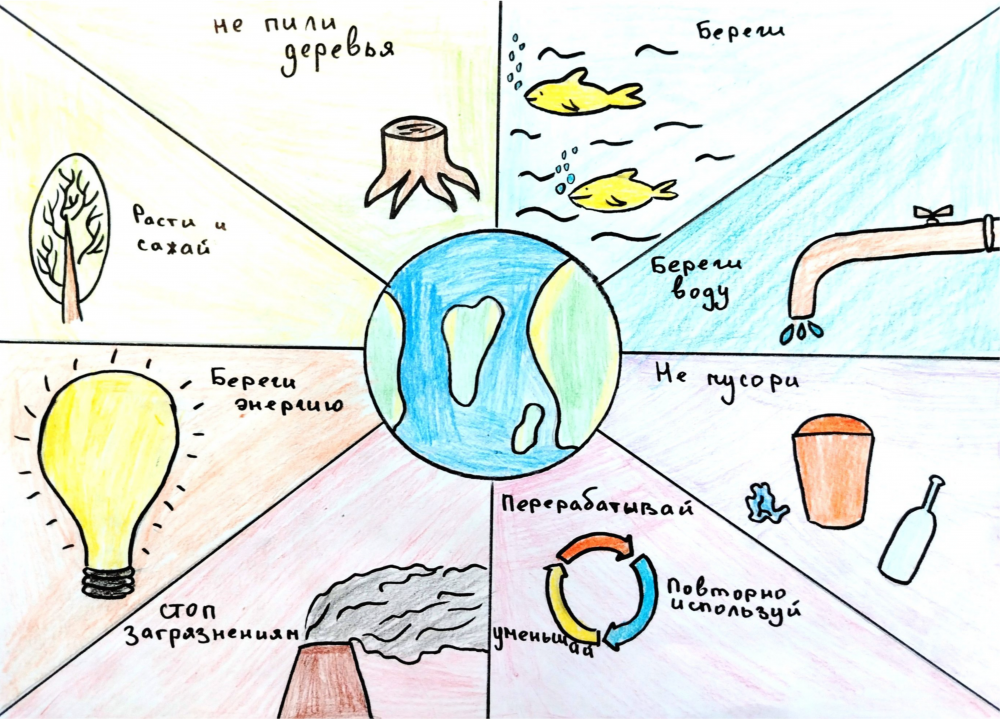 не пили
деревья
Береги
Расти и
сажай
Береги
воду
Береги
энергию
Не мусори
Перерабатывай
Повторно
используй
уменьшай
СТОП
Загрязнениям